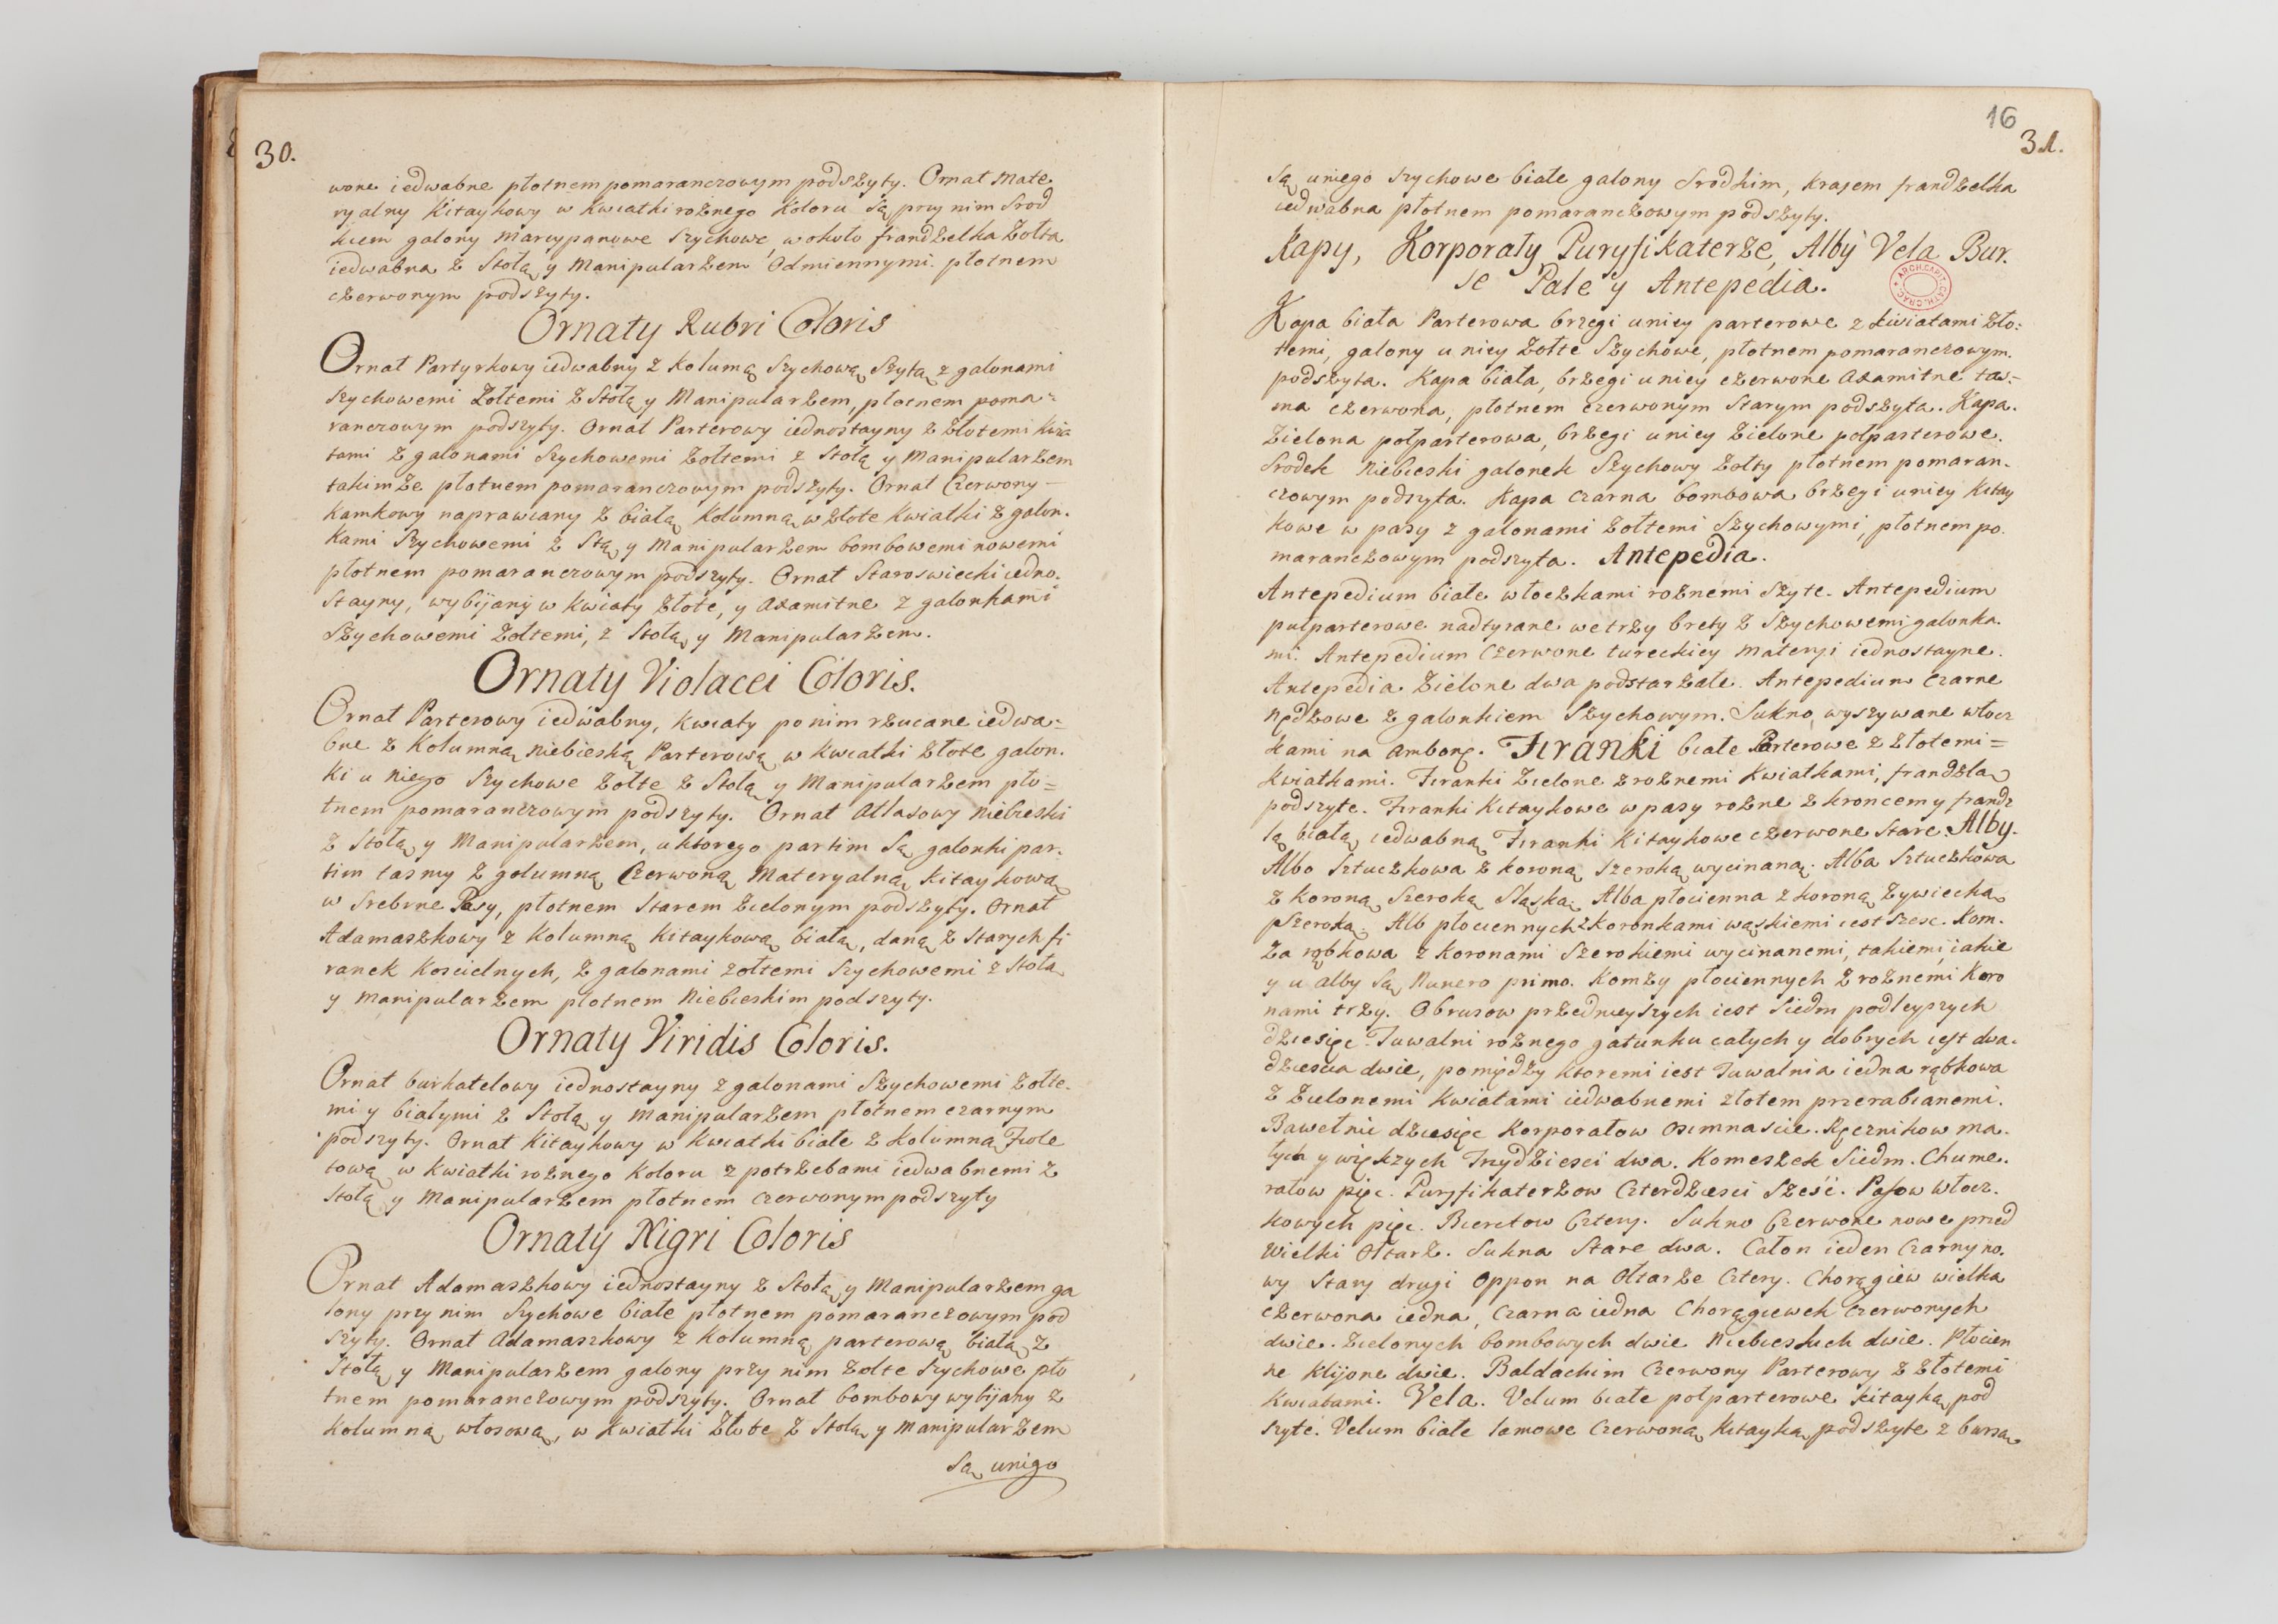 30.
wone iedwabne płotnem pomaranczowym podszyty. Ornat Mate
ryalny Kitaykowy w kwiatki rożnego Koloru Są przy nim Srod
kiem galony Marcypanowe Szychowe, wokoło frandzelka żołta
iedwabna z Stołą y Manipularzem Odmiennymi. płotnem
czerwonym podszyty.
Ornaty Rubri Coloris
Ornat Partyrkowy iedwabny z kolumą Szychową Szytą z galonami
Szychowemi Zołtemi z Stołą y Manipularzem, płotnem poma-
ranczowym podszyty. Ornat Parterowy iednostayny z złotemi kwia
tami z galonami Szychowemi żołtemi z Stołą y Manipularzem
takimże płotnem pomaranczowym podszyty. Ornat Czerwony —
Kamkowy naprawiany z białą Kolumną w złote Kwiatki z galon.
Kami Szychowemi z Stą y Manipularzem bombowemi nowemi
płotnem pomaranczowym podszyty. Ornat Staroswiecki iedno.
Stayny, wybijany w Kwiaty złote, y axamitne z galonkami
Szychowemi żołtemi, z Stołą y Manipularzem.
Ornaty Violacei Coloris.
Ornat Parterowy iedwabny, kwiaty po nim rzucane iedwa-
bne z Kolumną Niebieską Parterową w kwiatki złote galon.
Ki u Niego Szychowe żołte z Stołą y Manipularzem pło=
tnem pomaranczowym podszyty. Ornat Atlasowy Niebieski
z Stołą y Manipularzem, u ktorego partim Są galonki par.
tim tasmy z golumną Czerwoną Materyalną Kitaykową
w Srebrne Pasy, płotnem Starem Zielonym podszyty. Ornat
Adamaszkowy z Kolumną Kitaykową białą, daną z Starych fi
ranek Koscielnych, z galonami zołtemi Szychowemi z Stołą
y Manipularzem płotnem Niebieskim podszyty.
Ornaty Viridis Coloris.
Ornat burkatelowy iednostayny z galonami Szychowemi żołte.
mi y białymi z Stołą y Manipularzem płotnem czarnym
podszyty. Ornat Kitaykowy w kwiatki białe z Kolumną Fiole
tową w kwiatki rożnego koloru z potrzebami iedwabnemi z
Stołą y Manipularzem płotnem czerwonym podszyty
Ornaty Nigri Coloris
Ornat Adamaszkowy iednostayny z Stołą y Manipularzem ga
lony przy nim Szychowe białe płotnem pomaranczowym pod
szyty. Ornat Adamaszkowy z Kolumną parterową białą z
Stołą y Manipularzem galony przy nim żołte Szychowe pło
tnem pomaranczowym podszyty. Ornat bombowy wybijany z
Kolumną włosową, w kwiatki Złote z Stołą y Manipularzem
Są unigo
16
31.
Są uniego szychowe białe galony Srodkim, krajem frandzelka
iedwabna płotnem pomaranczowym podszyty.
Kapy, Korporały Puryfikaterze, Alby Vela Bur.
se Pale y Antepedia.
ARCH. CAPIT. CATH. CRAC.
Kapa biała Parterowa brzegi uniey parterowe z kwiatami zło:
temi, galony u niey żołte Szychowe, płotnem pomaranczowym.
podszyta. Kapa biała, brzegi u niey czerwone axamitne tas:
ma czerwona, płotnem czerwonym Starym podszyta. Kapa.
Zielona połparterowa, brzegi u niey Zielone połparterowe.
Srodek Niebieski galonek Szychowy żołty płotnem pomaran.
czowym podszyta. Kapa czarna bombowa brzegi u niey Kitay
kowe w pasy z galonami żołtemi Szychowymi, płotnem po.
maranczowym podszyta. Antepedia.
Antepedium białe włoczkami rożnemi Szyte. Antepedium
pulparterowe nadtyrane we trzy brety z Szychowemi galonka.
mi. Antepedium czerwone tureckiey Materyi iednostayne.
Antepedia Zielone dwa podstarzałe. Antepedium czarne
Nędzowe z galonkiem Szychowym. Sukno wyszywane włocz
kami na ambonę. Firanki białe Parterowe z złotemi=
kwiatkami. Firanki Zielone z rożnemi kwiatkami, frandzlą
podszyte. Firanki Kitaykowe w pasy rożne z kroncem y frandz
lą białą iedwabną Firanki Kitaykowe czerwone Stare. Alby.
Albo Sztuczkowa z koroną szeroką wycinaną. Alba Sztuczkowa
z koroną Szeroką Sląską. Alba płocienna z koroną Zywiecką
Szeroką. Alb płociennych z koronkami wąskiemi iest Szesc. Kom.
ża rąbkowa z koronami Szerokiemi wycinanemi, takiemi, iakie
y u alby Są Numero primo. Komży płociennych z rożnemi koro
nami trzy. Obrusow przednieyszych iest Siedm podleyszych
dziesięc. Tuwalni rożnego gatunku całych y dobrych iest dwa.
dziescia dwie, pomiędzy ktoremi iest Tuwalnia iedna rąbkowa
z Zielonemi kwiatami iedwabnemi złotem przerabianemi.
Bawełnic dziesięc Korporałow osimnascie. Ręcznikow ma.
łych y większych Trzydziesci dwa. Komeszek Siedm. Chume.
rałow pięc. Puryfikaterzow Czterdziesci Sześć. Pasow włocz.
kowych pięc. Bieretow Cztery. Sukno Czerwone nowe przed
Wielki Ołtarz. Sukna Stare dwa. Całon ieden Czarny no.
wy Stary drugi Oppon na Ołtarze Cztery. Chorągiew wielka
czerwona iedna, czarna iedna Chorągiewek czerwonych
dwie. Zielonych bombowych dwie Niebieskich dwie. Płocien
ne Klijone dwie. Baldachim Czerwony Parterowy z złotemi
kwiatami. Vela. Velum białe połparterowe kitayką pod
szyte. Velum białe lamowe Czerwoną Kitayką podszyte z bursą